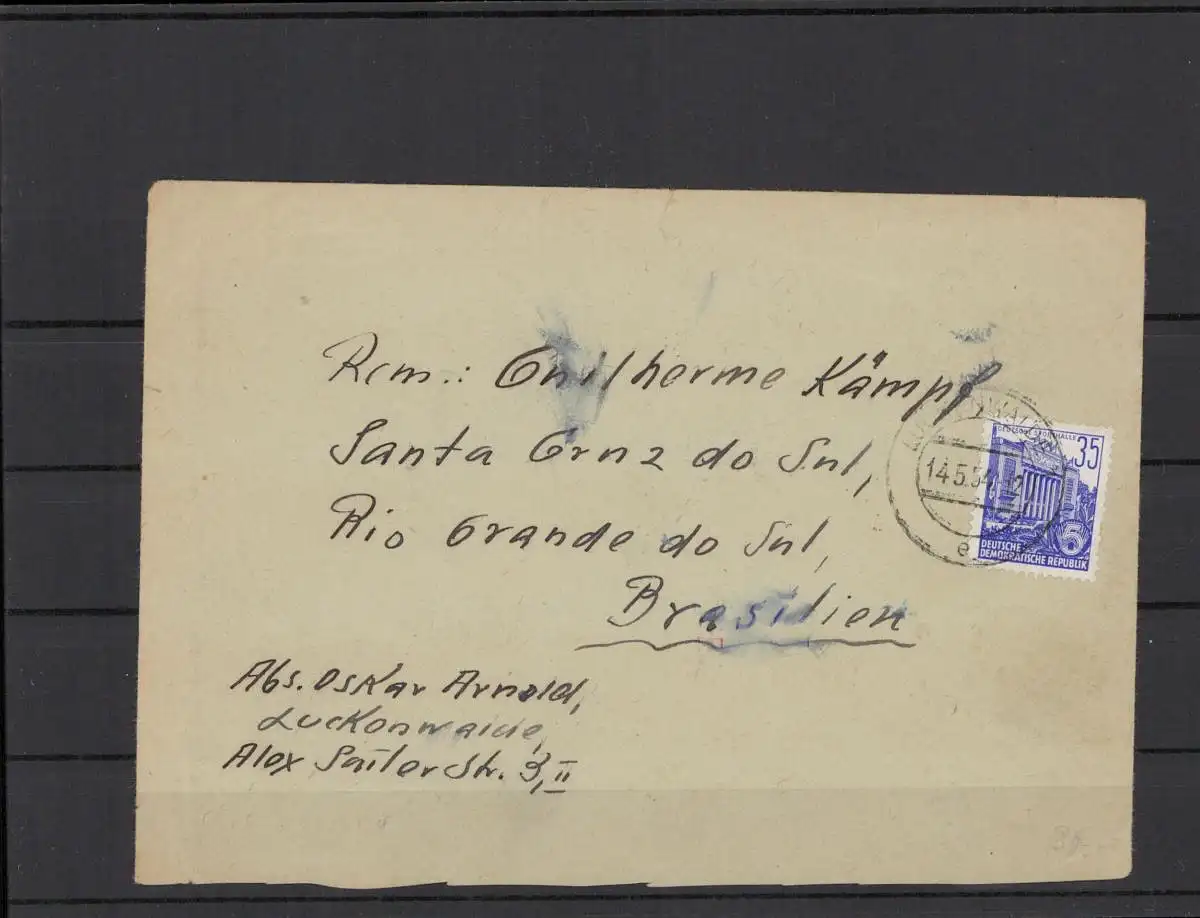 Rcm.: Guilherme Kämpf
Santa Cruz do Sul,
Rio Grande do Sul,
Brasilien
Abs. Oskar Arnold,
Luckenwalde,
Alex Sailer Str. 3, II
LUCKENWALDE
14.5.54.-12
e
DEUTSCHE SPORTHALLE
35
5
DEUTSCHE
DEMOKRATISCHE REPUBLIK